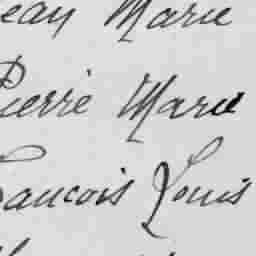 ean Marie
Pierre Marie
rancois Louis